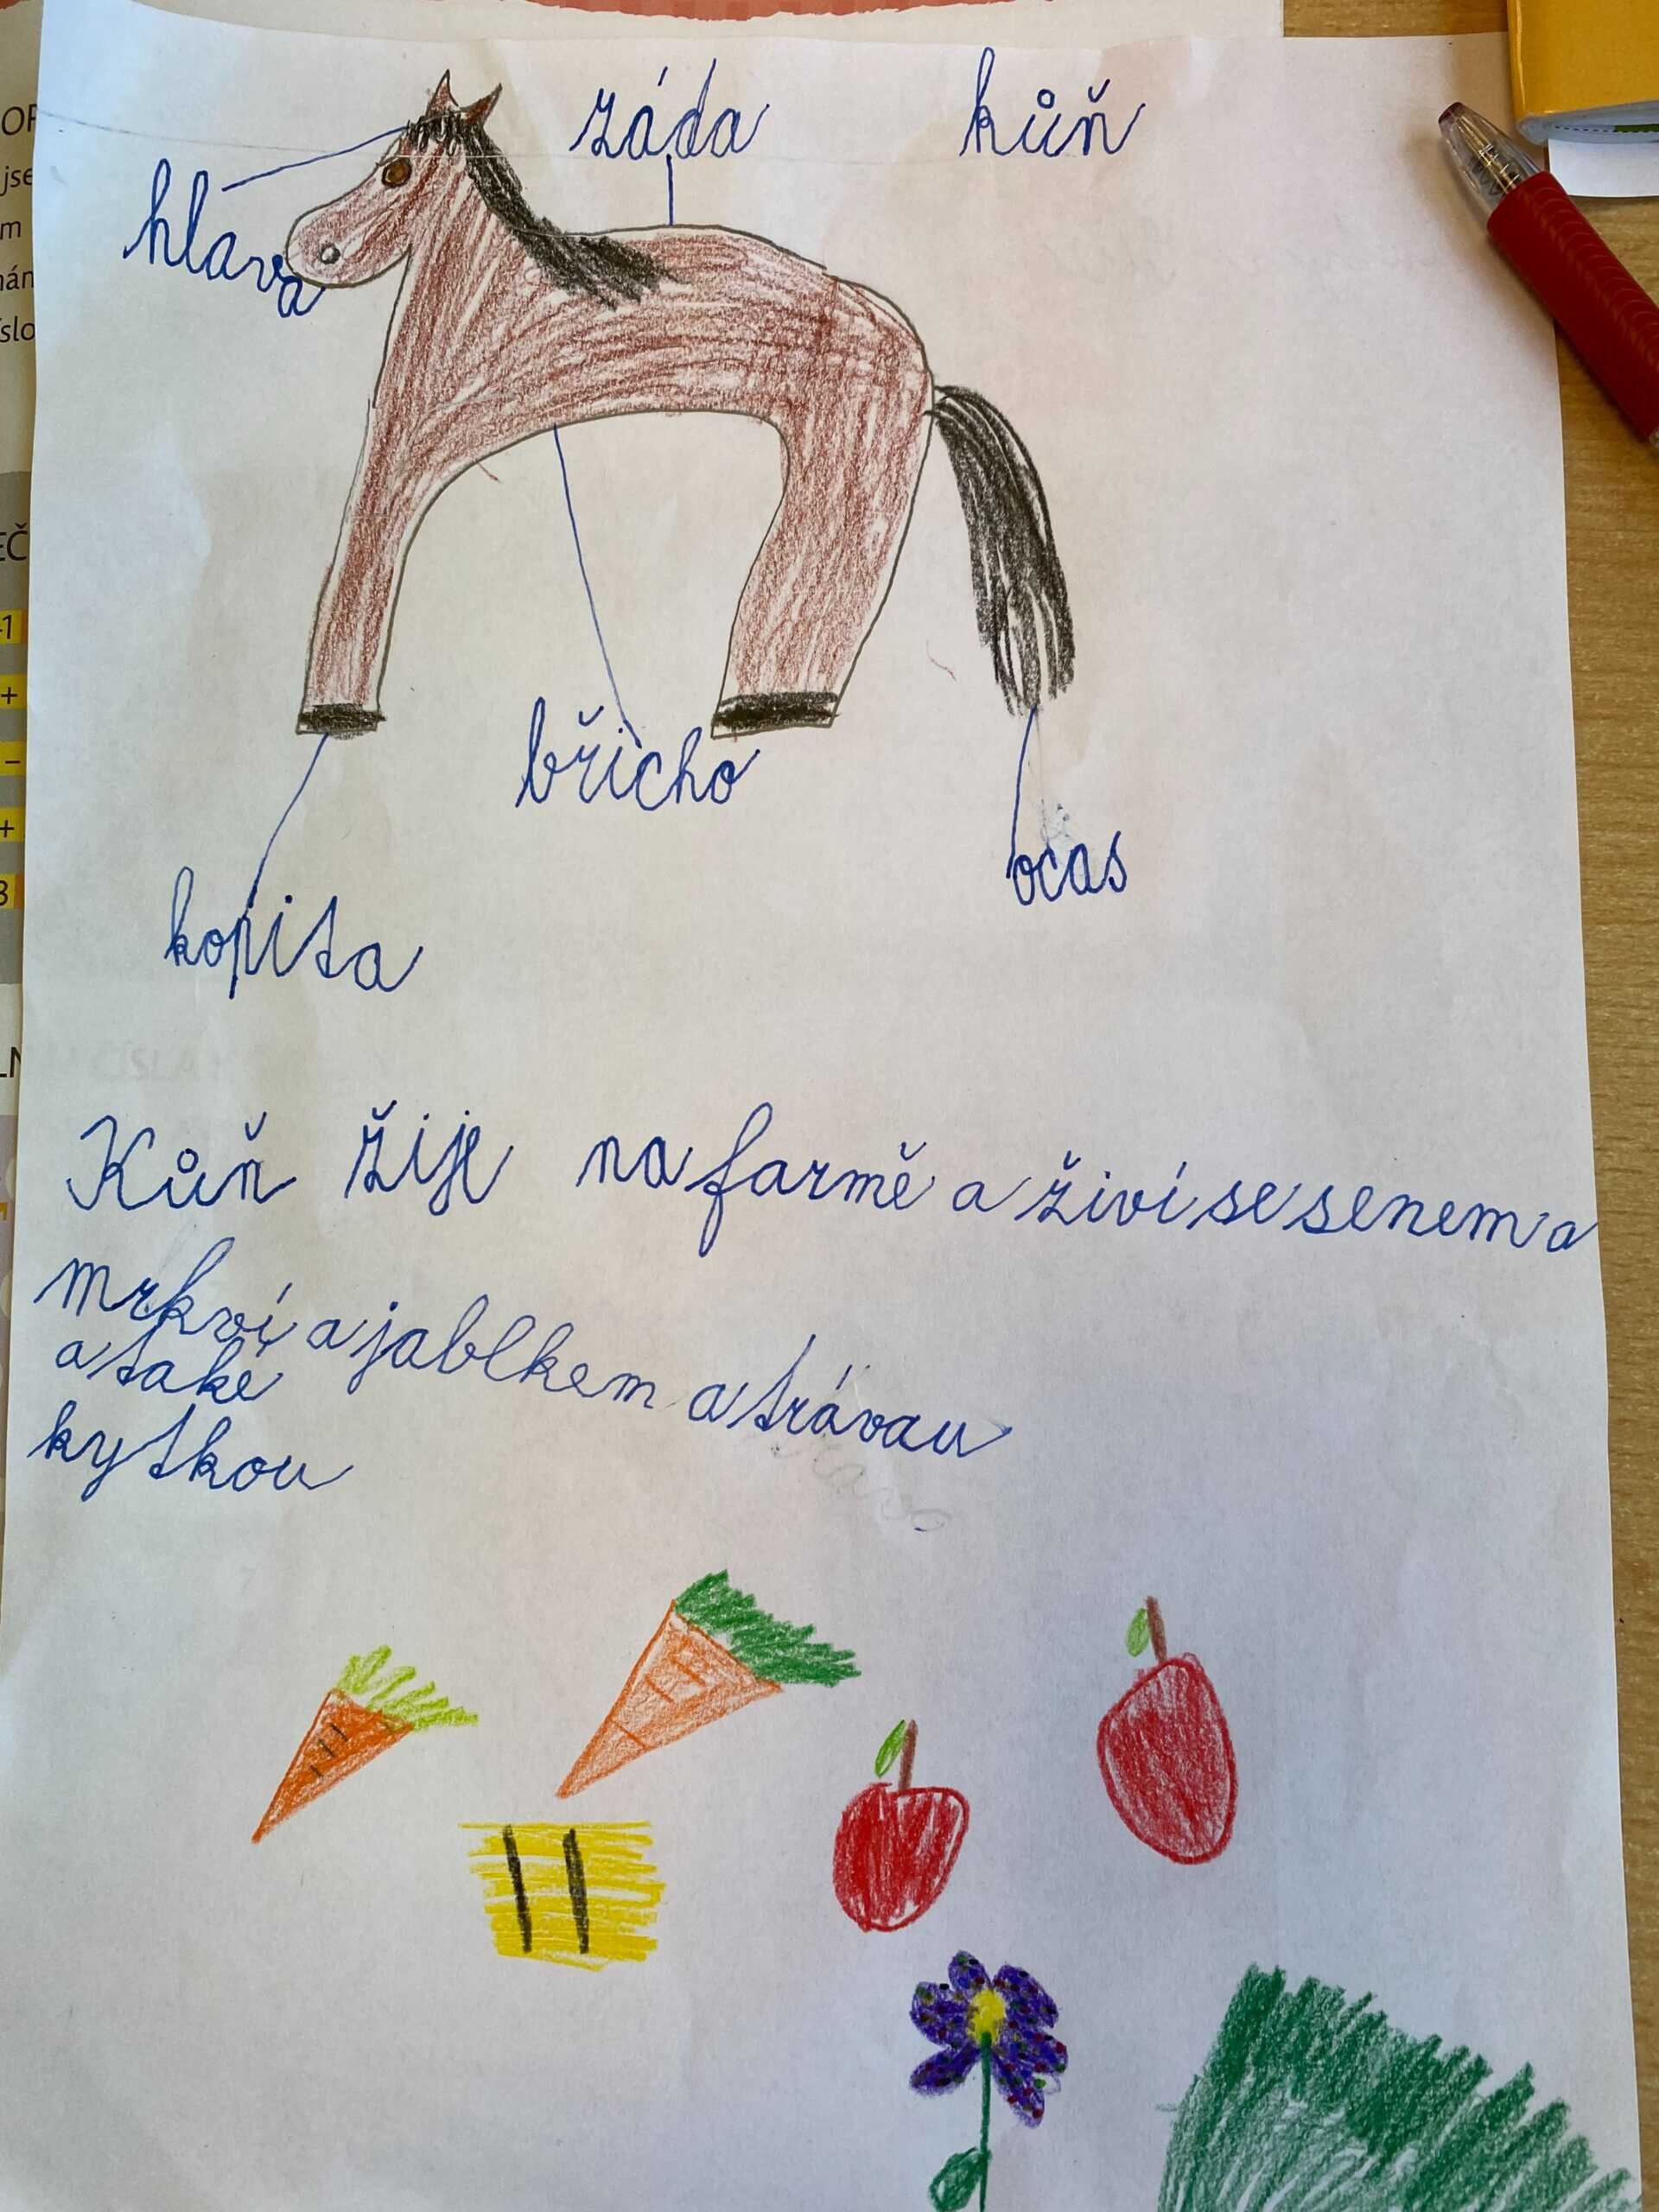 záda kůň
hlava
břicho
ocas
kopita
Kůň žije na farmě a živí se senem a
mrkví a jablkem a trávau
a také
kytkou